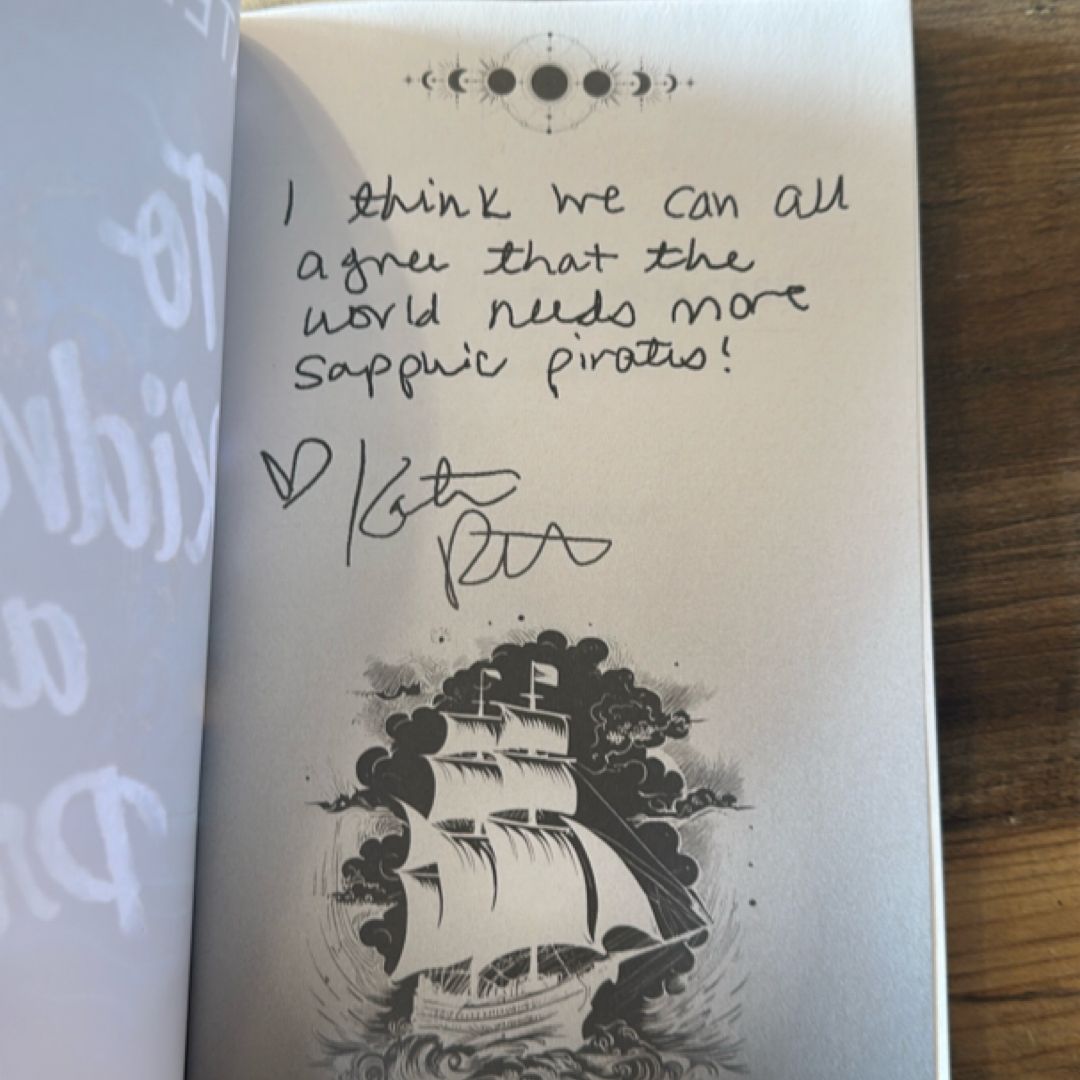 To
a
I think we can all
agree that the
world needs more
sapphic pirates!